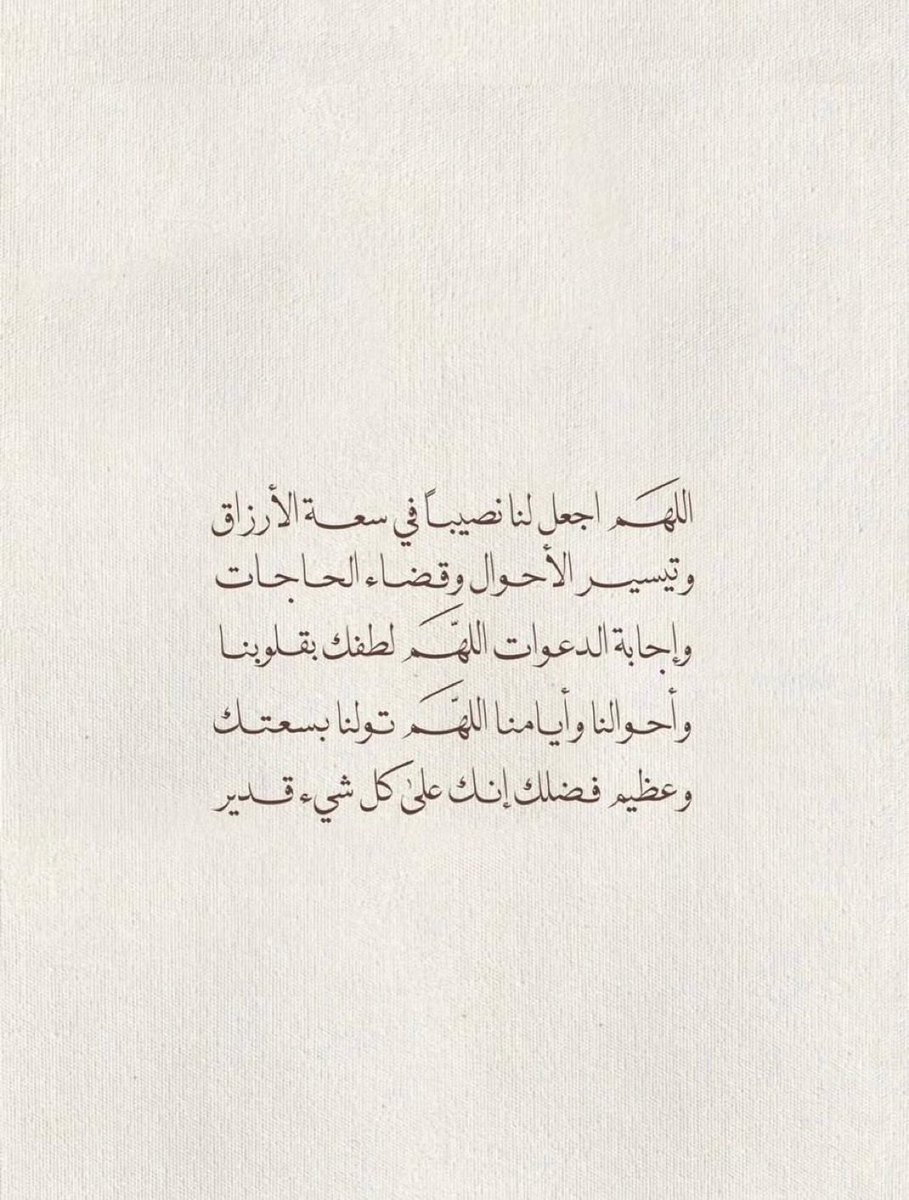 اللهَم اجعل لنا نصيباً في سعة الأرزاق
وتيسير الأحوال وقضاء الحاجات
وإجابة الدعوات اللهَّم لطفك بقلوبنا
وأحوالنا وأيامنا اللهَّم تولنا بسعتك
وعظيم فضلك إنك على كل شيء قدير